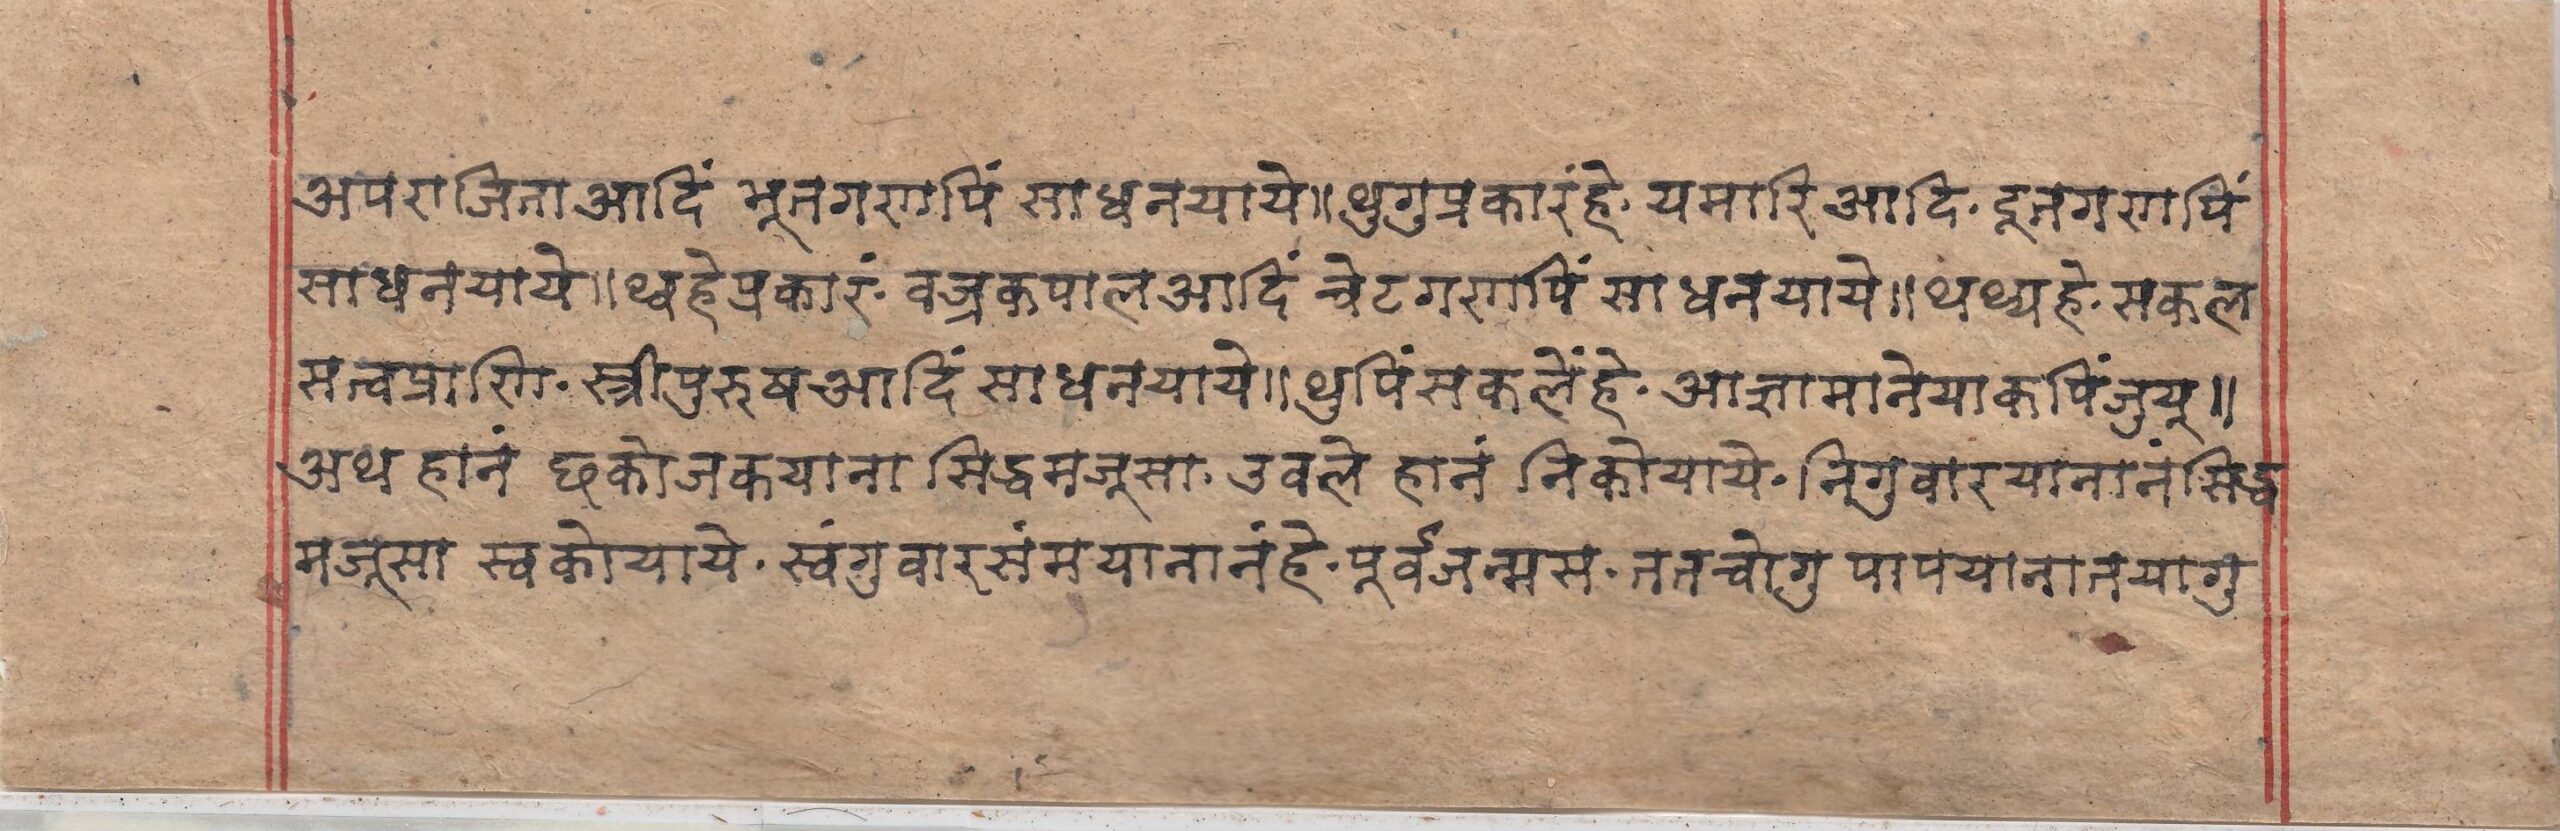 अपराजिताआदिं भूतगणपिं साधनयाये॥थुगुप्रकारंहे· यमारिआदि· दूतगणपिं
साधनयाये॥थ्वहेप्रकारं· वज्रकपालआदिं चेटगणपिं साधनयाये॥थथ्यहे· सकल
सत्वप्राणि· स्त्रीपुरुषआदिं साधनयाये॥थुपिंसकलेंहे· आज्ञामानेयाकपिंजुयू॥
अथ हानं छकोजकयाना सिद्धमजूसा· उवले हानं निकोयाये· निगुवारयानानंसिद्ध
मजूसा स्वकोयाये· स्वंगुवारसंमयानानंहे· पूर्वजन्मस· ततचोगु पापयानातयागु